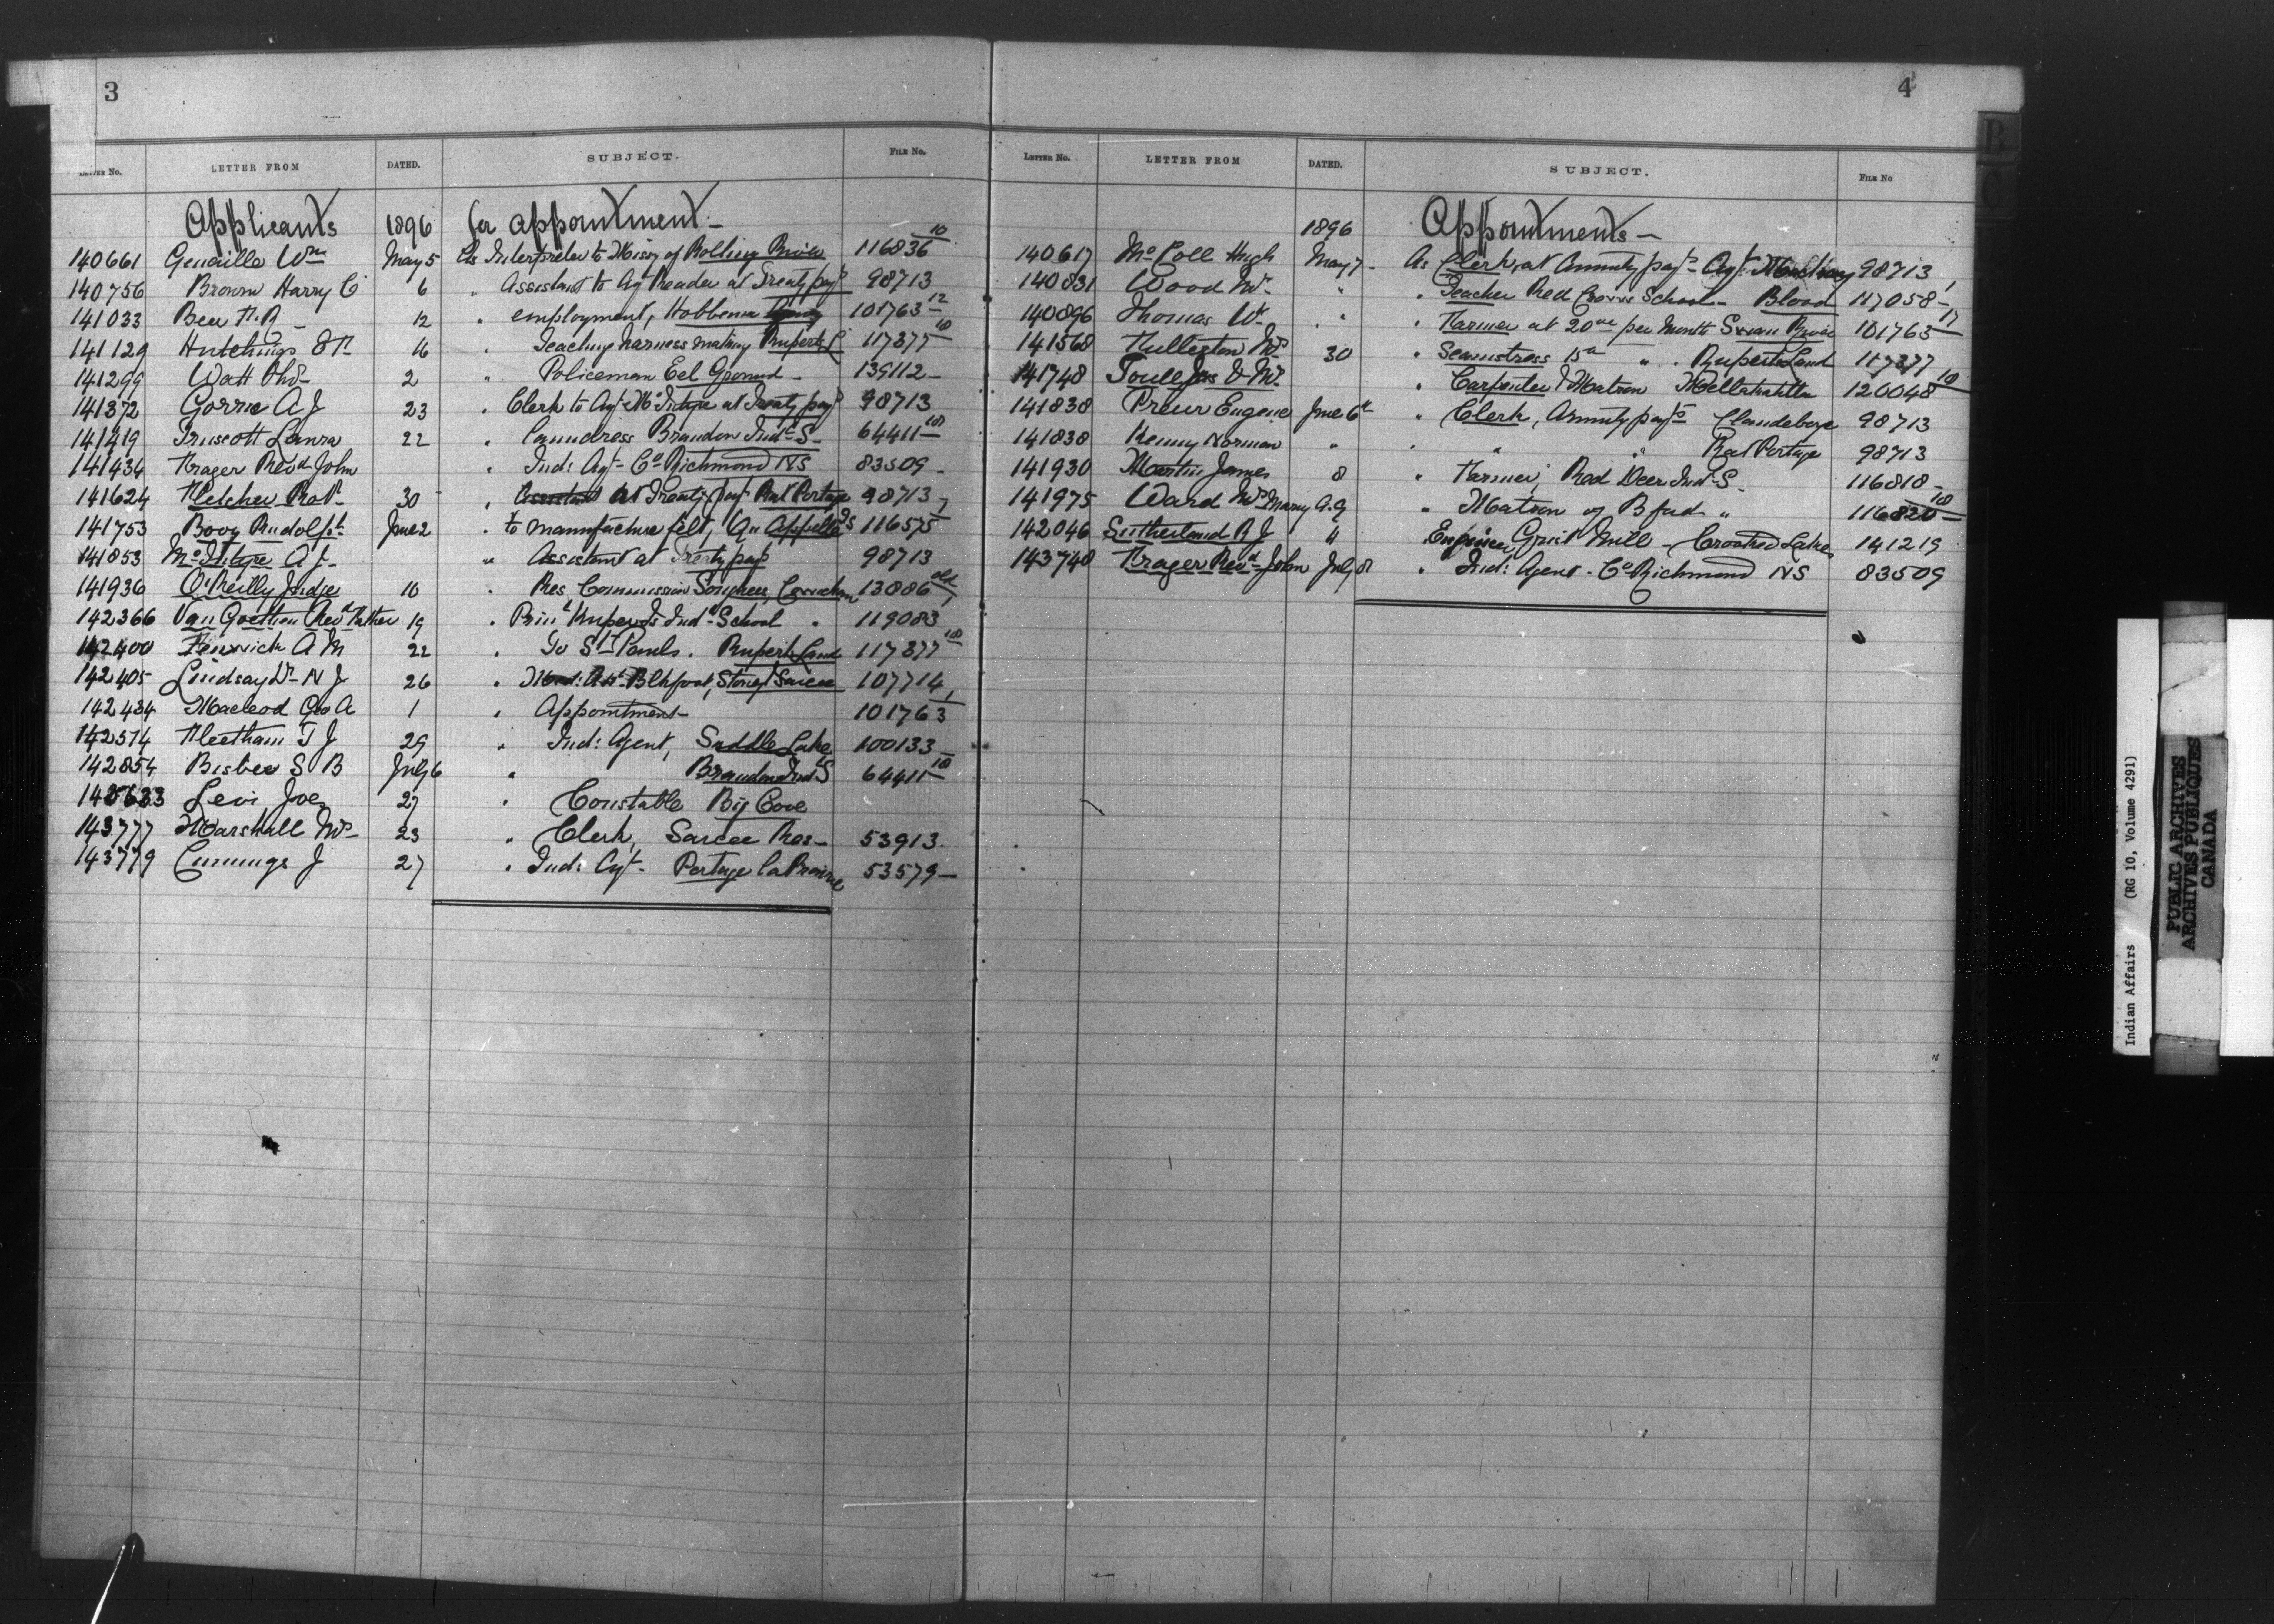 3
LETTER No. LETTER FROM DATED. SUBJECT. FILE No.
Applicants 1896 for appointment -
140661 Genaille Wm May 5 As Interpreter to Missy of Rolling River 116836 10
140756 Brown Harry C 6 " Assistant to Ag Reader at Treaty payt 98713
141033 Bee 12 " employment, Hobbema 101763 12
141129 Hutchings 16 " Teaching harness making Ruperts L 117377 10
141299 Watt 2 " Policeman Eel Ground - 139112 -
141372 Gorrie A J 23 " Clerk to Agt McIntyre at Treaty payt 98713
141419 Truscott Laura 22 " Laundress Brandon Indl S - 64411 10
141434 Frager Revd John " Ind: Agt - Co Richmond NS 83509 -
141624 Fletcher Robt 30 " Assistant at Treaty payt Rat Portage 98713
141753 Booy Rudolph June 2 " to manufacture felt, Qu Appelle IS 116575 7
141853 A J - " Assistant at Treaty payt 98713
141936 O'Reilly Judge 10 " Res Commission Songhees, Cowichan 13886 old
142366 Van Goethem Revd Father 19 " Prin Kuper Is Indl School " 119083
142400 Fenwick A M 22 " To St Pauls. Ruperts Land 117377 10
142405 Lindsay Dr N J 26 " Med: Att Blkfoot, Stoney Sarcee 107714
142434 Macleod Geo A 1 " Appointment - 101763 1
142514 Fleetham T J 29 " Ind: Agent, Saddle Lake 100133 -
142854 Bisbee S B July 6 " Brandon Ind S 64411 10
Levi Joe 27 " Constable Big Cove
143777 Marshall 23 " Clerk, Sarcee Res - 53913.
143779 Cummings J 27 " Ind: Agt - Portage la Prairie 53579 -
4
LETTER No. LETTER FROM DATED. SUBJECT. FILE No
1896 Appointments -
140617 McColl Hugh May 7 - As Clerk, at Annuity payts - Agt Mackay 98713 1
140831 Wood " " Teacher Red Crow's School - Blood 117058 -
140896 Thomas " " Farmer at 20 00 per month Swan River 101763 17
141568 Fullerton 30 " Seamstress 15 " " Ruperts Land 117377
141748 " Carpenter & Matron Metlakahtla 120048 10
141838 Prieur Eugene June 6th " Clerk, Annuity payts Clandeboye 98713
141838 Kenny Norman " " " " Rat Portage 98713
141930 Martin James 8 " Farmer, Red Deer Ind S - 116818 -
141975 Ward Mrs Mary A. 9 " Matron of Bfud " 116820 10
142046 Sutherland R J 4 Engineer Grist Mill - Crooked Lakes 141219
143748 Frager Revd John July 8 " Ind: Agent - Co Richmond NS 83509
B
C
Indian Affairs (RG 10, Volume 4291)
PUBLIC ARCHIVES
ARCHIVES PUBLIQUES
CANADA